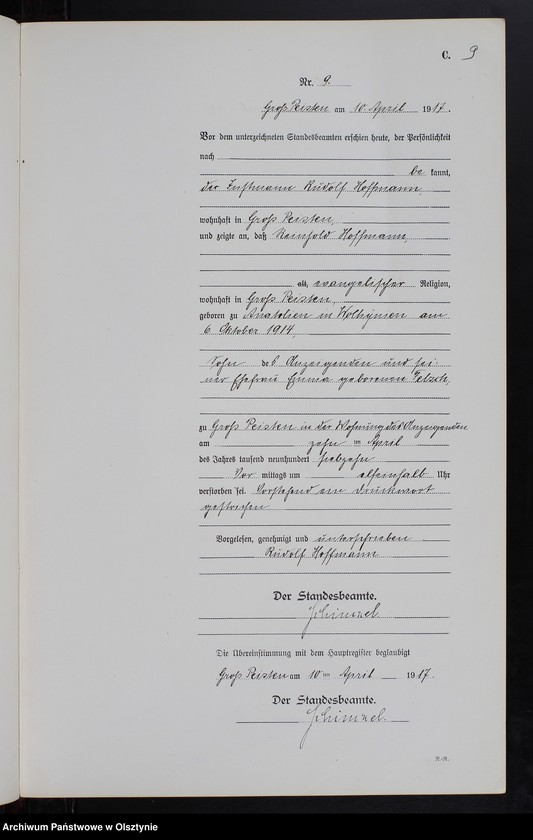 C. 9
Nr. 9.
Groß Peisten am 10. April 1917.
Vor dem unterzeichneten Standesbeamten erschien heute, der Persönlichkeit
nach
be kannt,
der Instmann Rudolf Hoffmann
wohnhaft in Groß Peisten,
und zeigte an, daß Reinhold Hoffmann,
alt, evangelischer Religion,
wohnhaft in Groß Peisten,
geboren zu Anatolien in Wolhynien am
6. Oktober 1914,
Sohn des Anzeigenden und sei-
ner Ehefrau Emma geborenen
zu Groß Peisten in der Wohnung des Anzeigenden
am zehn ten April
des Jahres tausend neunhundert siebzehn
Vor mittags um elfeinhalb Uhr
verstorben sei. Vorstehend ein Druckwort
gestrichen
Vorgelesen, genehmigt und unterschrieben
Rudolf Hoffmann
Der Standesbeamte.
Schimzel
Die Übereinstimmung mit dem Hauptregister beglaubigt
Groß Peisten am 10 ten April 1917.
Der Standesbeamte.
Schimzel
Archiwum Państwowe w Olsztynie